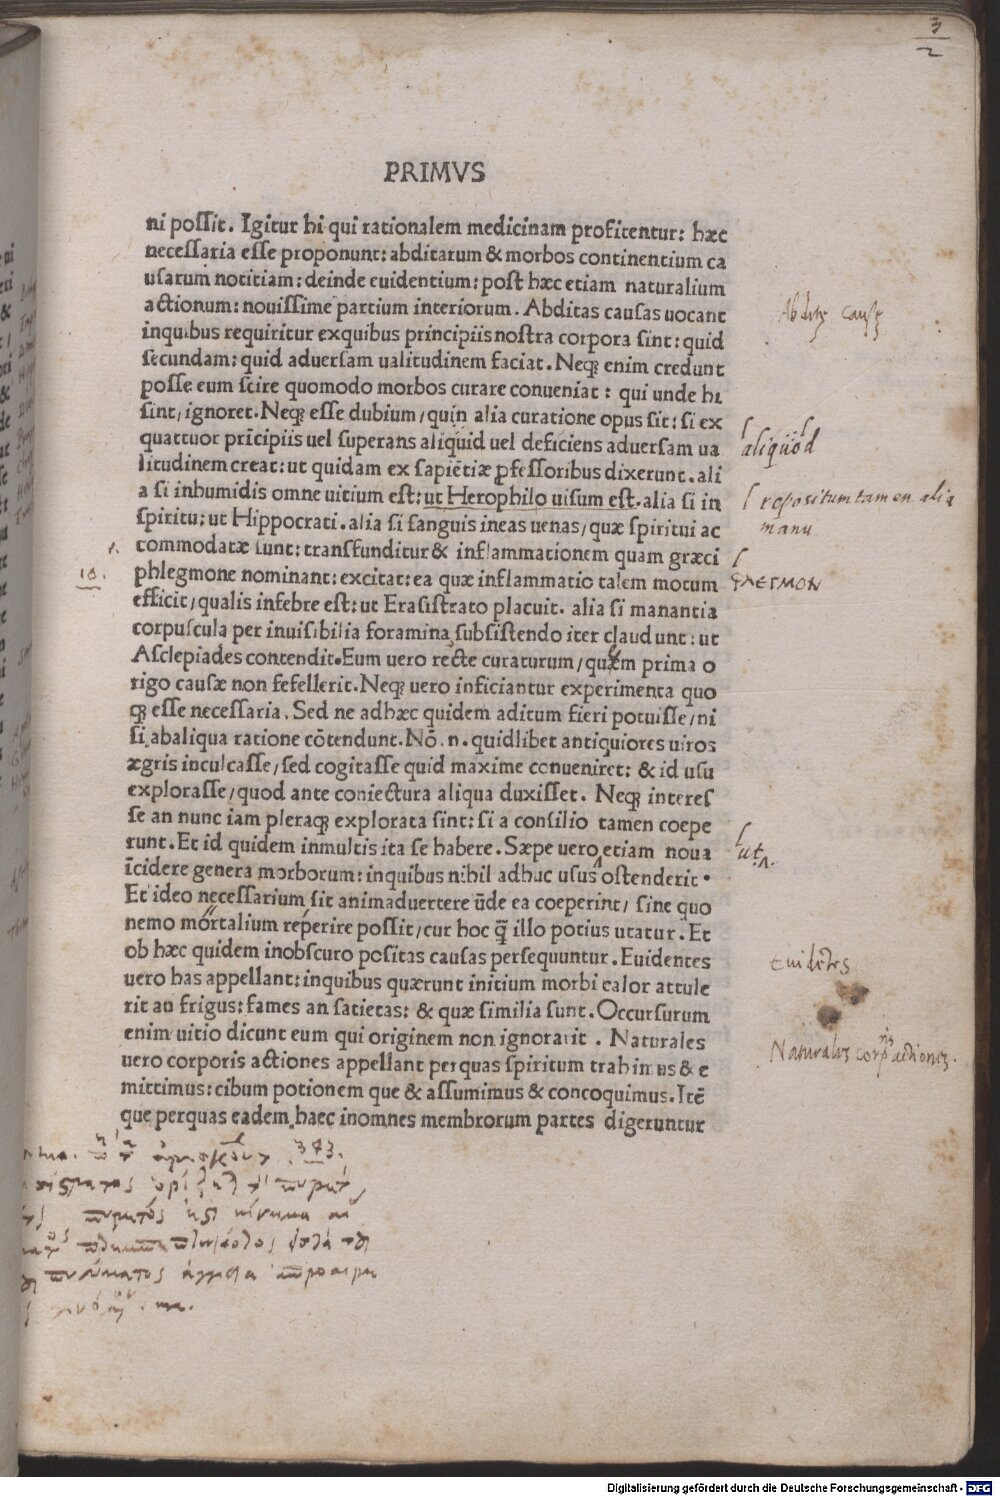 3
2
PRIMVS
ni possit. Igitur hi qui rationalem medicinam profitentur: hæc
necessaria esse proponunt: abditarum & morbos continentium ca
usarum notitiam: deinde euidentium: post hæc etiam naturalium
actionum: nouissime partium interiorum. Abditas causas uocant
inquibus requiritur exquibus principiis nostra corpora sint: quid
secundam: quid aduersam ualitudinem faciat. Neqꝫ enim credunt
posse eum scire quomodo morbos curare conueniat: qui unde hi
sint/ignoret. Neqꝫ esse dubium/quin alia curatione opus sit: si ex
quattuor prīcipiis uel superans aliquid uel deficiens aduersam ua
litudinem creat: ut quidam ex sapiētiæ ꝓfessoribus dixerunt. ali
a si inhumidis omne uitium est: ut Herophilo uisum est. alia si in
spiritu: ut Hippocrati. alia si sanguis ineas uenas/quæ spiritui ac
commodatæ sunt: transfunditur & inflammationem quam græci
phlegmone nominant: excitat: ea quæ inflammatio talem motum
efficit/qualis infebre est: ut Erasistrato placuit. alia si manantia
corpuscula per inuisibilia foramina subsistendo iter claudunt: ut
Asclepiades contendit. Eum uero recte curaturum/quem prima o
rigo causæ non fefellerit. Neqꝫ uero inficiantur experimenta quo
qꝫ esse necessaria. Sed ne adhæc quidem aditum fieri potuisse/ni
si abaliqua ratione cōtendunt. Nō .n. quidlibet antiquiores uiros
ægris inculcasse/sed cogitasse quid maxime conueniret: & id usu
explorasse/quod ante coniectura aliqua duxisset. Neqꝫ interes
se an nunc iam pleraqꝫ explorata sint: si a consilio tamen coepe
runt. Et id quidem inmultis ita se habere. Sæpe uero etiam noua
īcidere genera morborum: inquibus nihil adhuc usus ostenderit.
Et ideo necessarium sit animaduertere ūde ea coeperint/ sine quo
nemo mortalium reperire possit/cur hoc q̄ illo potius utatur. Et
ob hæc quidem inobscuro positas causas persequuntur. Euidentes
uero has appellant: inquibus quærunt initium morbi calor attule
rit an frigus: fames an satietas: & quæ similia sunt. Occursurum
enim uitio dicunt eum qui originem non ignorarit. Naturales
uero corporis actiones appellant perquas spiritum trahimus & e
mittimus: cibum potionem que & assumimus & concoquimus. Itē
que perquas eadem haec inomnes membrorum partes digeruntur
aliquod
repositum tamen alia
manu
18.
ut
Euidētes
Naturales actiones.
343.
Digitalisierung gefördert durch die Deutsche Forschungsgemeinschaft - DFG